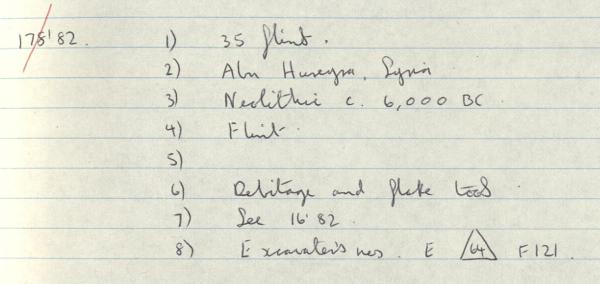 175'82. 1) 35 flint.
2) Abu Hureyra, Syria
3) Neolithic c. 6,000 BC
4) Flint.
5)
6) Debitage and flake tools.
7) See 16'82.
8) Excavater's nos. E 64 F121.